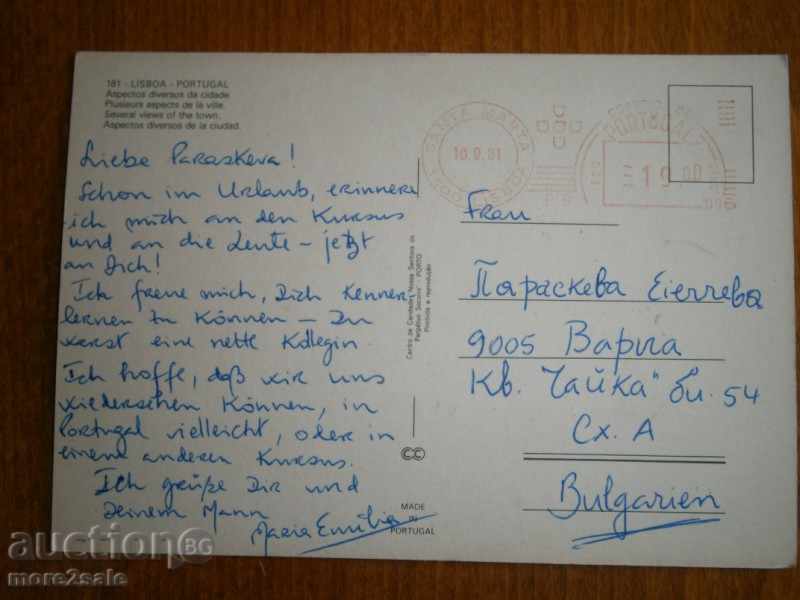 181 - LISBOA - PORTUGAL
Aspectos diversos da cidade.
Plusieurs aspects de la ville.
Several views of the town.
Aspectos diversos de la ciudad.
Liebe Paraskeva!
Schon im Urlaub, erinnere
ich mich an den Kursus
und an die Leute – jetzt
an Dich!
Ich freue mich, Dich kennen-
lernen zu können – Du
warst eine nette Kollegin.
Ich hoffe, daß wir uns
wiedersehen können, in
Portugal vielleicht, oder in
einem anderen Kursus.
Ich grüße Dir und
Deinem Mann
Maria Emilia
MADE
IN
PORTUGAL
Perpétuo Socorro - PORTO
Proibida a reprodução
CC
SANTA MARTA
10.9.81
1200 LISBOA
PORTUGAL
19.00
Frau
Параскева
9005 Варна
Кв. "Чайка" бл. 54
Сх. А
Bulgarien
auctionBG
more2sale